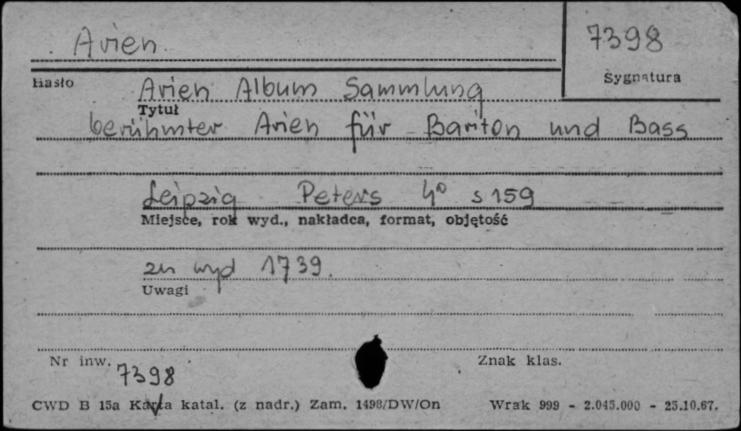 Arien
7398
Hasło
Sygnatura
Arien Album Sammlung
Tytuł
berühmter Arien für Bariton und Bass
Leipzig Peters 4° s 159
Miejsce, rok wyd., nakładca, format, objętość
zn wyd 1739.
Uwagi
Nr inw. 7398
Znak klas.
CWD B 15a Karta katal. (z nadr.) Zam. 1498/DW/On Wrak 999 - 2.045.000 - 25.10.67.